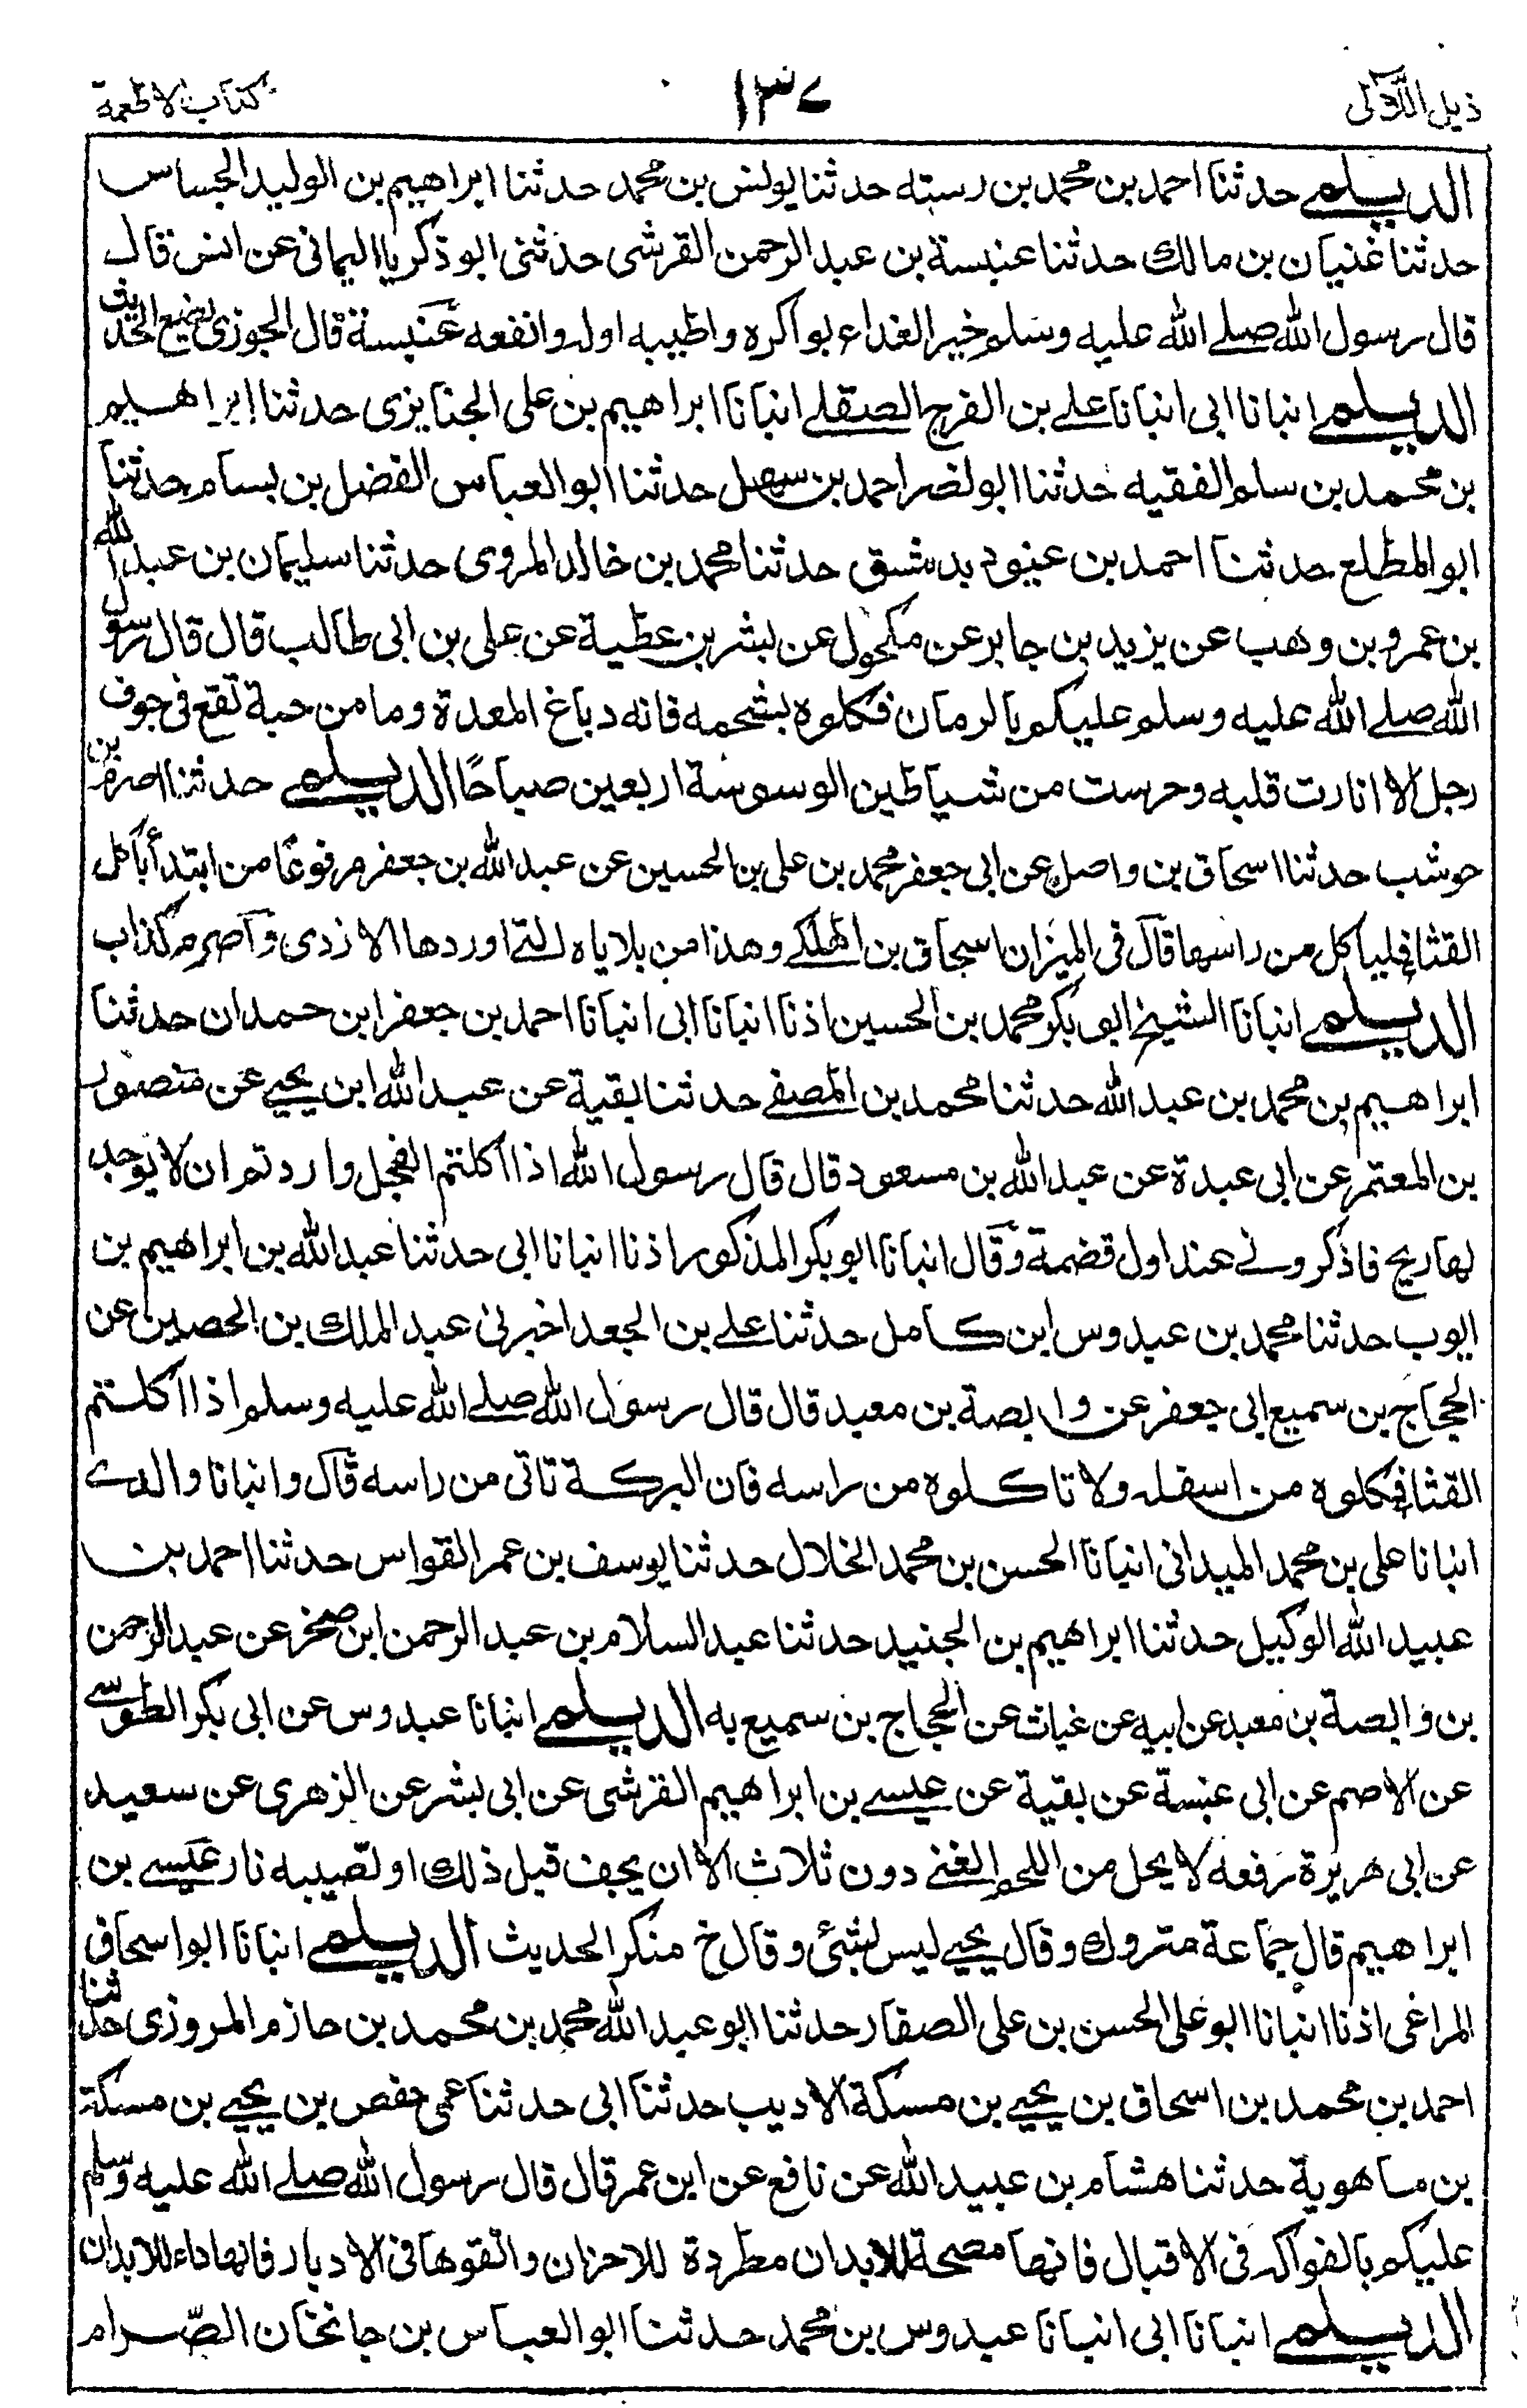 ذيل اللآلى
١٣٧
كتاب الاطعمة
الديلمے حدثنا احمد بن محمد بن رسته حدثنا يونس بن محمد حدثنا ابراهيم بن الوليد الجساس
حدثنا غنيان بن مالك حدثنا عنبسة بن عبد الرحمن القرشى حدثنى ابو ذكريا اليمانى عن انس قال
قال رسول الله صلے الله عليه وسلم خير الغداء بواكره واطيبه اوله وانفعه عنبسة قال الجوزى يضع الحديث
الديلمے انبانا ابى انبانا علے بن الفرج الصقلے انبانا ابراهيم بن على الجنايزى حدثنا ابراهيم
بن محمد بن سلم الفقيه حدثنا ابو نصر احمد بن سهل حدثنا ابو العباس الفضل بن بسام حدثنا
ابو المطلع حدثنا احمد بن عنبوم بدمشق حدثنا محمد بن خالد المروى حدثنا سليمان بن عبد الله
بن عمرو بن وهب عن يزيد بن جابر عن مكحول عن بشر بن عطية عن على بن ابى طالب قال قال رسول
الله صلے الله عليه وسلم عليكم بالرمان فكلوه بشحمه فانه دباغ المعدة وما من حبة تقع فى جوف
رجل الا انارت قلبه وحرست من شياطين الوسوسة اربعين صباحًا الديلمے حدثنا اصرم بن
حوشب حدثنا اسحاق بن واصل عن ابى جعفر محمد بن على بن الحسين عن عبد الله بن جعفر مرفوعًا من ابتدأ باكل
القثا فلياكل من راسها قال فى الميزان اسحاق بن الهلكے وهذا من بلاياه التے اوردها الازدى واصرم كذاب
الديلمے انبانا الشيخ ابو بكر محمد بن الحسين اذنا انبانا ابى انبانا احمد بن جعفر ابن حمدان حدثنا
ابراهيم بن محمد بن عبد الله حدثنا محمد بن المصفے حدثنا بقية عن عبد الله ابن يحيے عن منصور
بن المعتمر عن ابى عبدة عن عبد الله بن مسعود قال قال رسول الله اذا اكلتم الفجل واردتم ان لا يوجد
لها ريح فاذكرونے عند اول قضمة وقال انبانا ابو بكر المذكور اذنا انبانا ابى حدثنا عبد الله بن ابراهيم بن
ايوب حدثنا محمد بن عبدوس ابن كامل حدثنا علے بن الجعد اخبرنى عبد الملك بن الحصين عن
الحجاج بن سميع ابى جعفر عن وابصة بن معبد قال قال رسول الله صلے الله عليه وسلم اذا اكلتم
القثا فكلوه من اسفله ولا تاكلوه من راسه فان البركة تاتى من راسه قال وانبانا والدے
انبانا على بن محمد الميدانى انبانا الحسن بن محمد الخلال حدثنا يوسف بن عمر القواس حدثنا احمد بن
عبيد الله الوكيل حدثنا ابراهيم بن الجنيد حدثنا عبد السلام بن عبد الرحمن ابن صخر عن عبد الرحمن
بن وابصة بن معبد عن ابيه عن غياث عن الحجاج بن سميع به الديلمے انبانا عبدوس عن ابى بكر الطوسے
عن الاصم عن ابى عنبسة عن بقية عن عيسے بن ابراهيم القرشى عن ابى بشر عن الزهرى عن سعيد
عن ابى هريرة رفعه لا يحل من اللحم الغنے دون ثلاث الا ان يجف قبل ذلك او تصيبه نار عيسے بن
ابراهيم قال جماعة متروك وقال يحيے ليس بشئ وقال خ منكر الحديث الديلمے انبانا ابو اسحاق
المراغى اذنا انبانا ابو على الحسن بن على الصفار حدثنا ابو عبد الله محمد بن محمد بن حازم المروزى حدثنا
احمد بن محمد بن اسحاق بن يحيے بن مسكة الاديب حدثنا ابى حدثنا عمى حفص بن يحيے بن مسكة
بن ماهوية حدثنا هشام بن عبيد الله عن نافع عن ابن عمر قال قال رسول الله صلے الله عليه وسلم
عليكم بالفواكه فى الاقبال فانها مصحة للابدان مطردة للاحزان والقوها فى الادبار فانها داء للابدان
الديلمے انبانا ابى انبانا عبدوس بن محمد حدثنا ابو العباس بن جانخان الصّرام